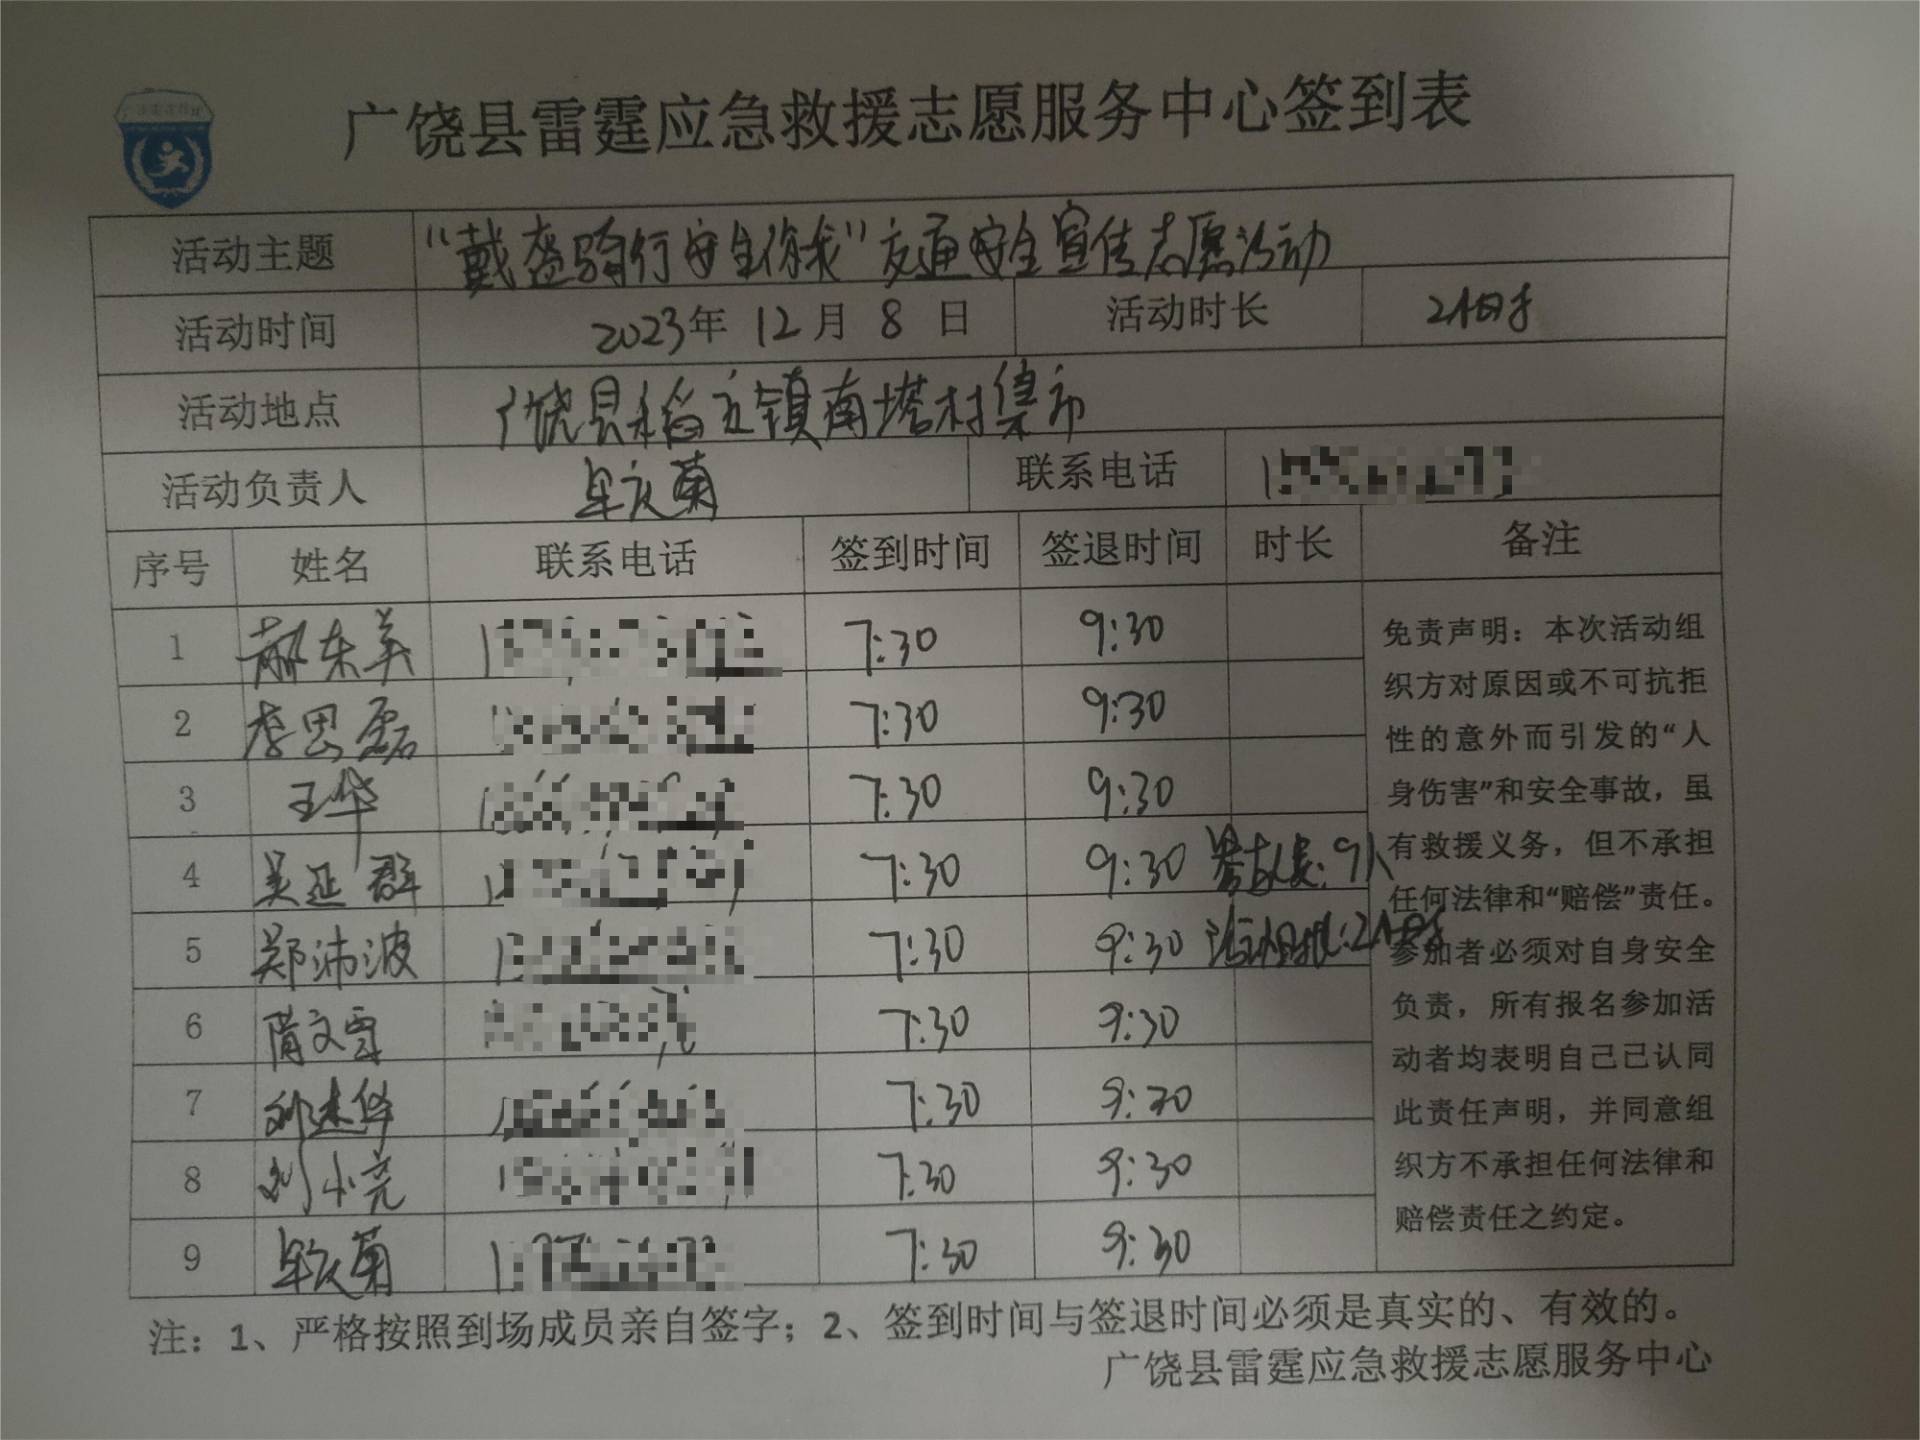 广饶县雷霆应急救援志愿服务中心签到表
活动主题 “戴盔骑行安全你我”交通安全宣传志愿活动
活动时间 2023年 12月 8日 活动时长 2小时
活动地点 广饶县稻庄镇南塔村集市
活动负责人 牟文菊 联系电话 1
序号 姓名 联系电话 签到时间 签退时间 时长 备注
1 郝东美 1 7:30 9:30
2 李思磊 7:30 9:30
3 王华 1 7:30 9:30
4 吴延群 1 7:30 9:30 参加人数:9人
5 郑沛波 1 7:30 9:30 活动时长:2小时
6 隋文雪 7:30 9:30
7 刘建华 1 7:30 9:30
8 刘小亮 1 7:30 9:30
9 牟文菊 1 7:30 9:30
免责声明：本次活动组
织方对原因或不可抗拒
性的意外而引发的“人
身伤害”和安全事故，虽
有救援义务，但不承担
任何法律和“赔偿”责任。
参加者必须对自身安全
负责，所有报名参加活
动者均表明自己已认同
此责任声明，并同意组
织方不承担任何法律和
赔偿责任之约定。
注：1、严格按照到场成员亲自签字；2、签到时间与签退时间必须是真实的、有效的。
广饶县雷霆应急救援志愿服务中心